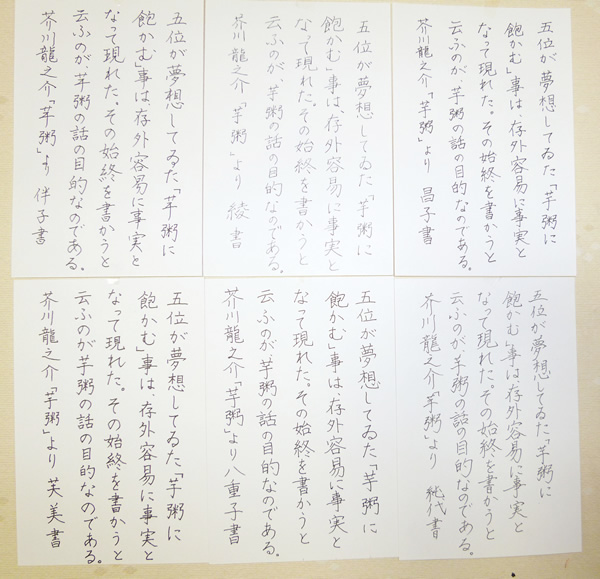 五位が夢想してゐた「芋粥に
飽かむ」事は、存外容易に事実と
なって現れた。その始終を書かうと
云ふのが芋粥の話の目的なのである。
芥川龍之介「芋粥」より 昌子書
五位が夢想してゐた「芋粥に
飽かむ」事は、存外容易に事実と
なって現れた。その始終を書かうと
云ふのが、芋粥の話の目的なのである。
芥川龍之介「芋粥」より 綾書
五位が夢想してゐた「芋粥に
飽かむ」事は、存外容易に事実と
なって現れた。その始終を書かうと
云ふのが、芋粥の話の目的なのである。
芥川龍之介「芋粥」より 伴子書
五位が夢想してゐた「芋粥に
飽かむ」事は、存外容易に事実と
なって現れた。その始終を書かうと
云ふのが、芋粥の話の目的なのである。
芥川龍之介「芋粥」より 純代書
五位が夢想してゐた「芋粥に
飽かむ」事は、存外容易に事実と
なって現れた。その始終を書かうと
云ふのが芋粥の話の目的なのである。
芥川龍之介「芋粥」より八重子書
五位が夢想してゐた「芋粥に
飽かむ」事は、存外容易に事実と
なって現れた。その始終を書かうと
云ふのが芋粥の話の目的なのである。
芥川龍之介「芋粥」より 芙美書